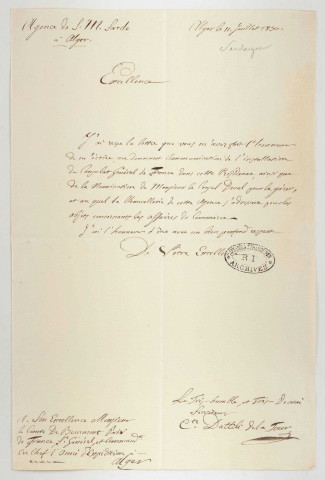 Agence de S. M. Sarde
à Alger.
Alger le 11 Juillet 1830
Sardaigne
Excellence
J'ai reçu la lettre que vous m'avez fait l'honneur
de m'écrire, en donnant Communication de l'installation
du Consulat Général de France dans cette Résidence, ainsi que
de la Nomination de Monsieur le Consul Deval pour la gérer,
et au quel la Chancellerie de cette Agence s'adressera pour les
objets concernant les affaires de Commerce.
J'ai l'honneur d'être avec un bien profond respect
De Votre Excellence
ARCHIVES
Le Très-humble et Très-Devoué
Serviteur
C.te D'Attili de la Tour
A Son Excellence Monsieur
le Comte De Bourmont Pair
de France Gt. Général et Command.
en Chef l'Armée d'Expédition
Alger